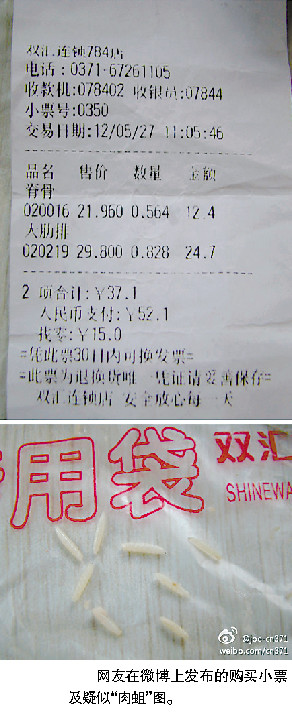 双汇连锁784店
电话:0371-67261105
收款机:078402 收银员:07844
小票号:0350
交易日期:12/05/27 11:05:46
品名 售价 数量 金额
脊骨
020016 21.960 0.564 12.4
大肋排
020219 29.800 0.828 24.7
2 项合计:￥37.1
人民币支付:￥52.1
找零:￥15.0
=凭此票30日内可换发票=
=此票为退换货唯一凭证请妥善保存=
双汇连锁店 安全放心每一天
用袋 双汇
SHINEWA
weibo.com/cn371
网友在微博上发布的购买小票
及疑似“肉蛆”图。